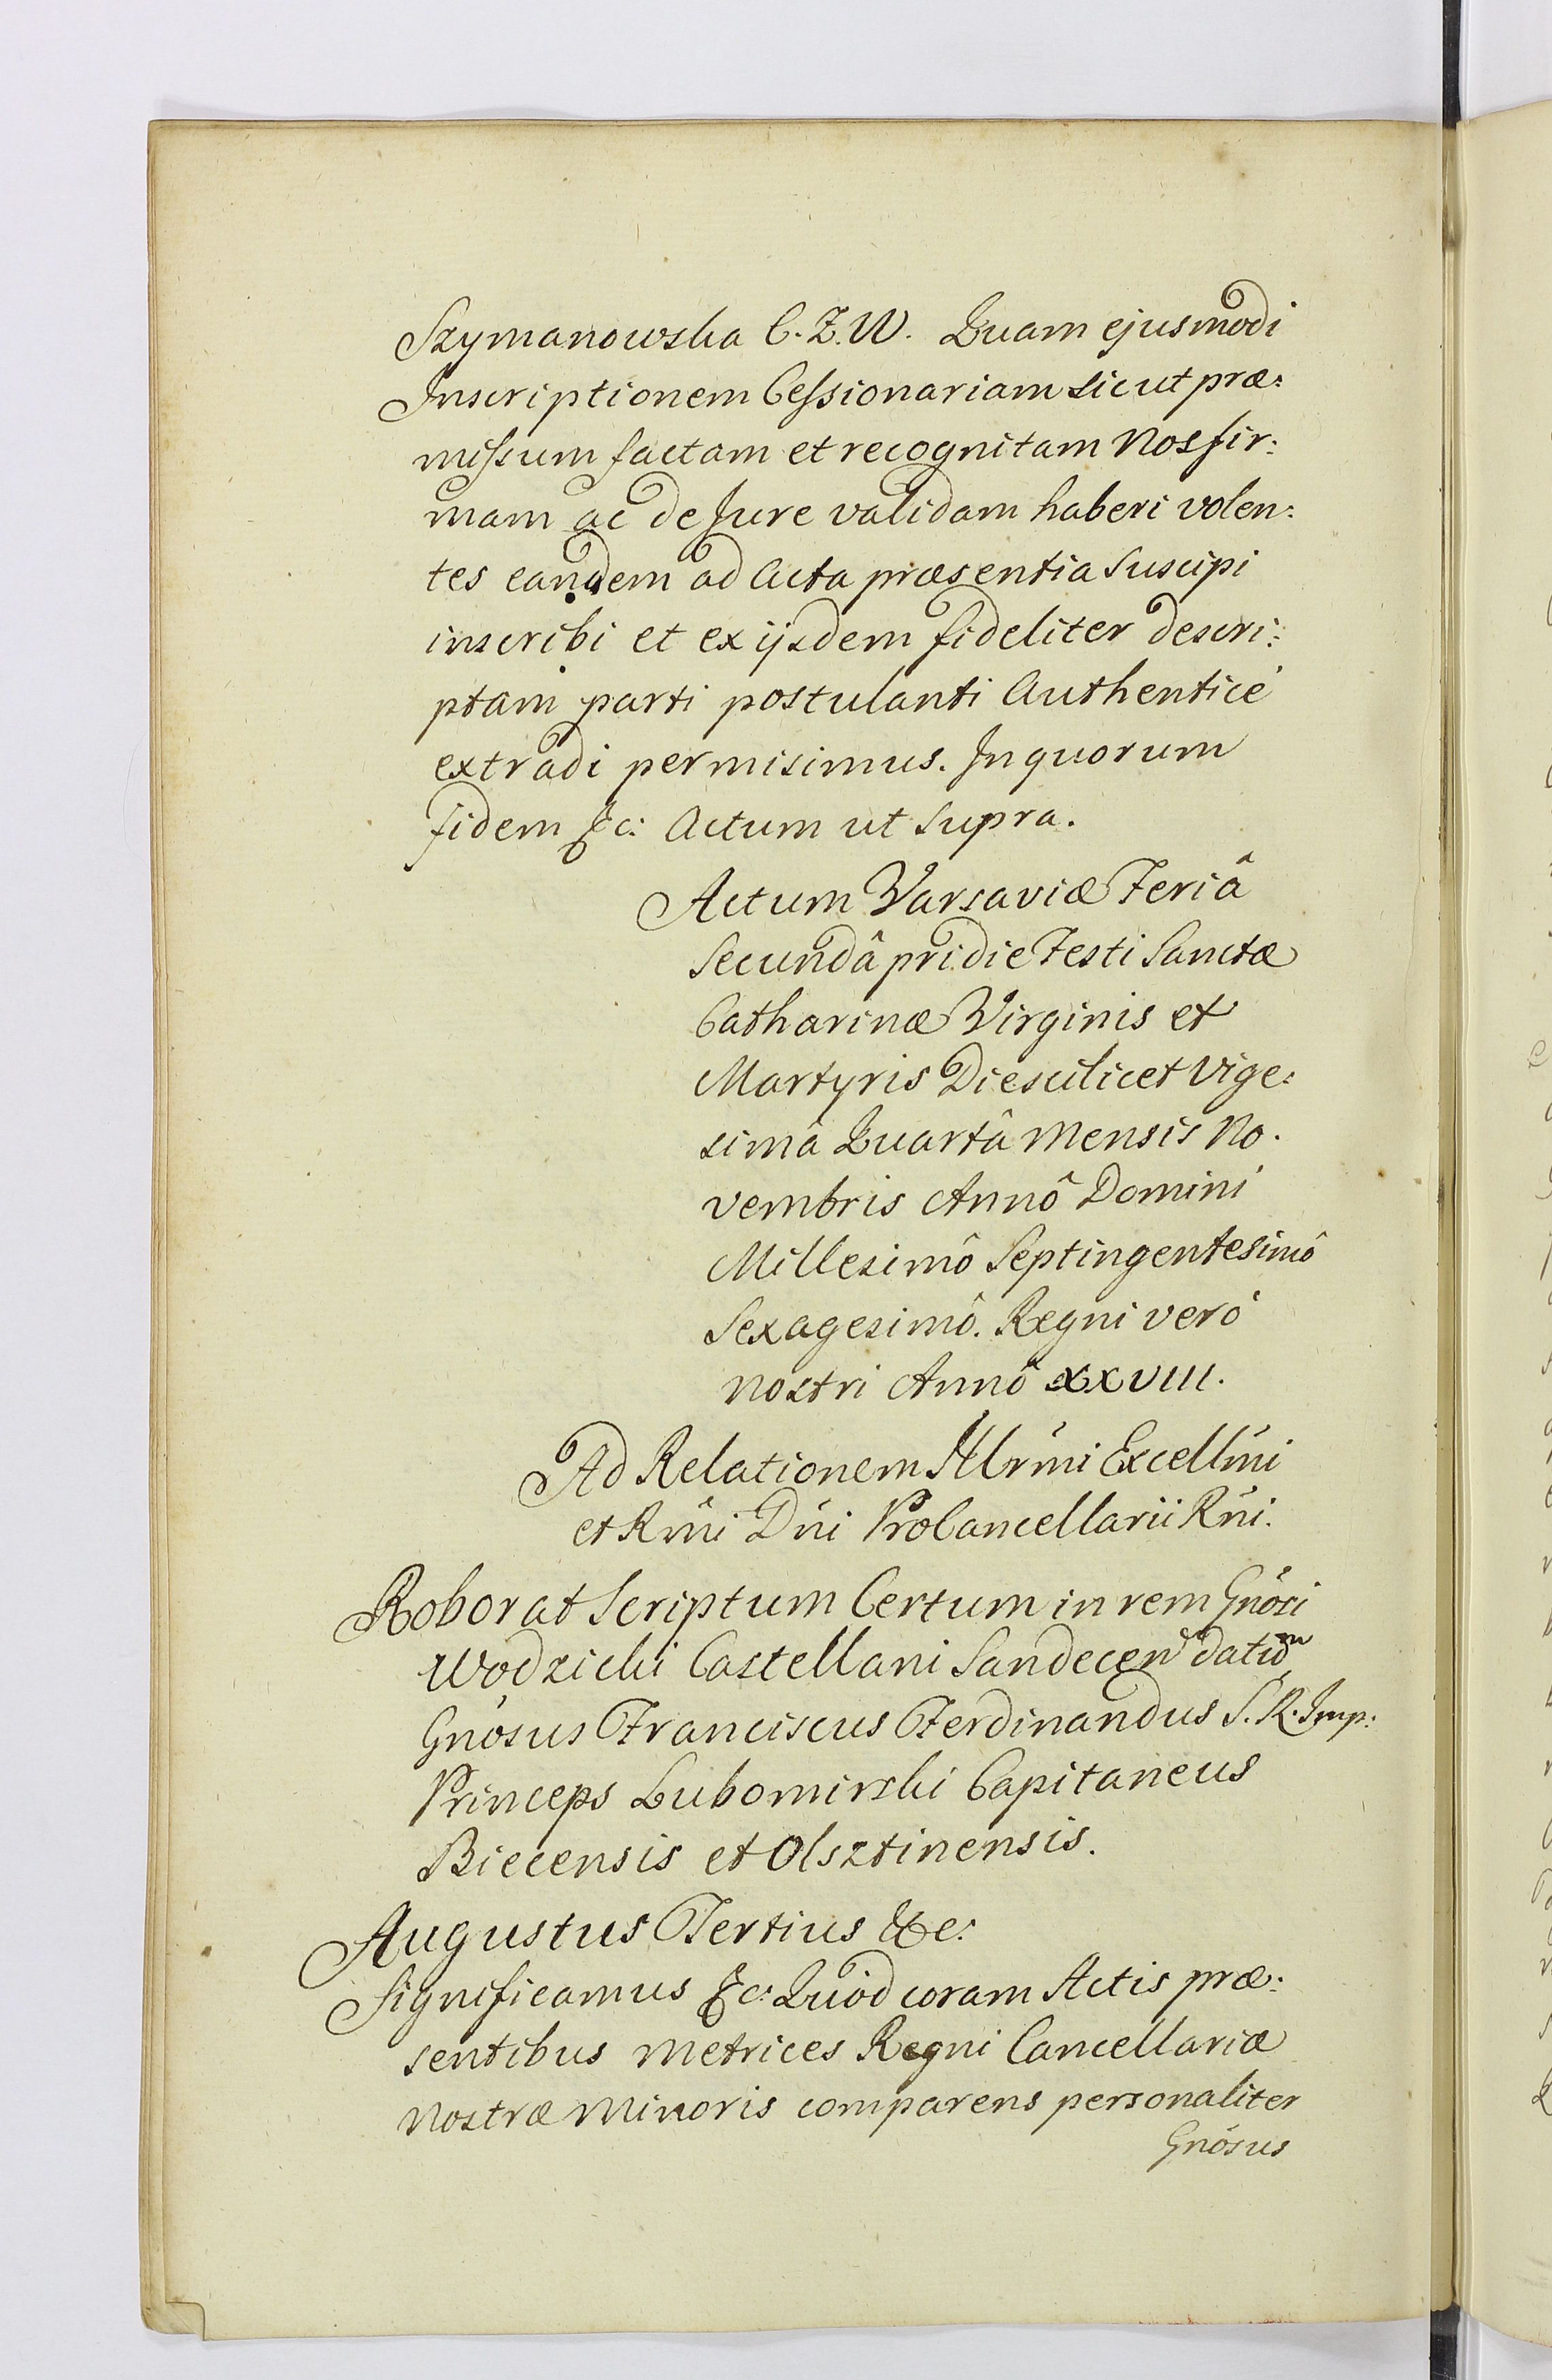 Szymanowska C. Z. W. Quam ejusmodi
Inscriptionem Cessionariam sicut præ:
missum factam et recognitam Nos fir:
mam ac de Jure validam haberi volen:
tes eandem ad Acta præsentia Suscipi
inscribi et ex ijsdem fideliter descri:
ptam parti postulanti Authenticé
extradi permisimus. In quorum
fidem &c: Actum ut Supra.
Actum Varsaviæ Feriâ
Secundâ pridie Festi Sanctæ
Catharinæ Virginis et
Martyris Die scilicet Vige:
simâ Quartâ Mensis No.
vembris Annô Domini
Millesimô Septingentesimô
Sexagesimô. Regni veró
nostri Annô XXVIII.
Ad Relationem Illrmi Excellmi
et Rmi Dni ProCancellarii Rni.
Roborat Scriptum Certum in rem Gnosi
Wodzicki Castellani Sandecen datum
Gnosus Franciscus Ferdinandus S. R. Imp:
Princeps Lubomirski Capitaneus
Biecensis et Olsztinensis.
Augustus Tertius &c:
Significamus &c: Quód coram Actis præ:
sentibus Metrices Regni Cancellariæ
Nostræ Minoris comparens personaliter
Gnosus